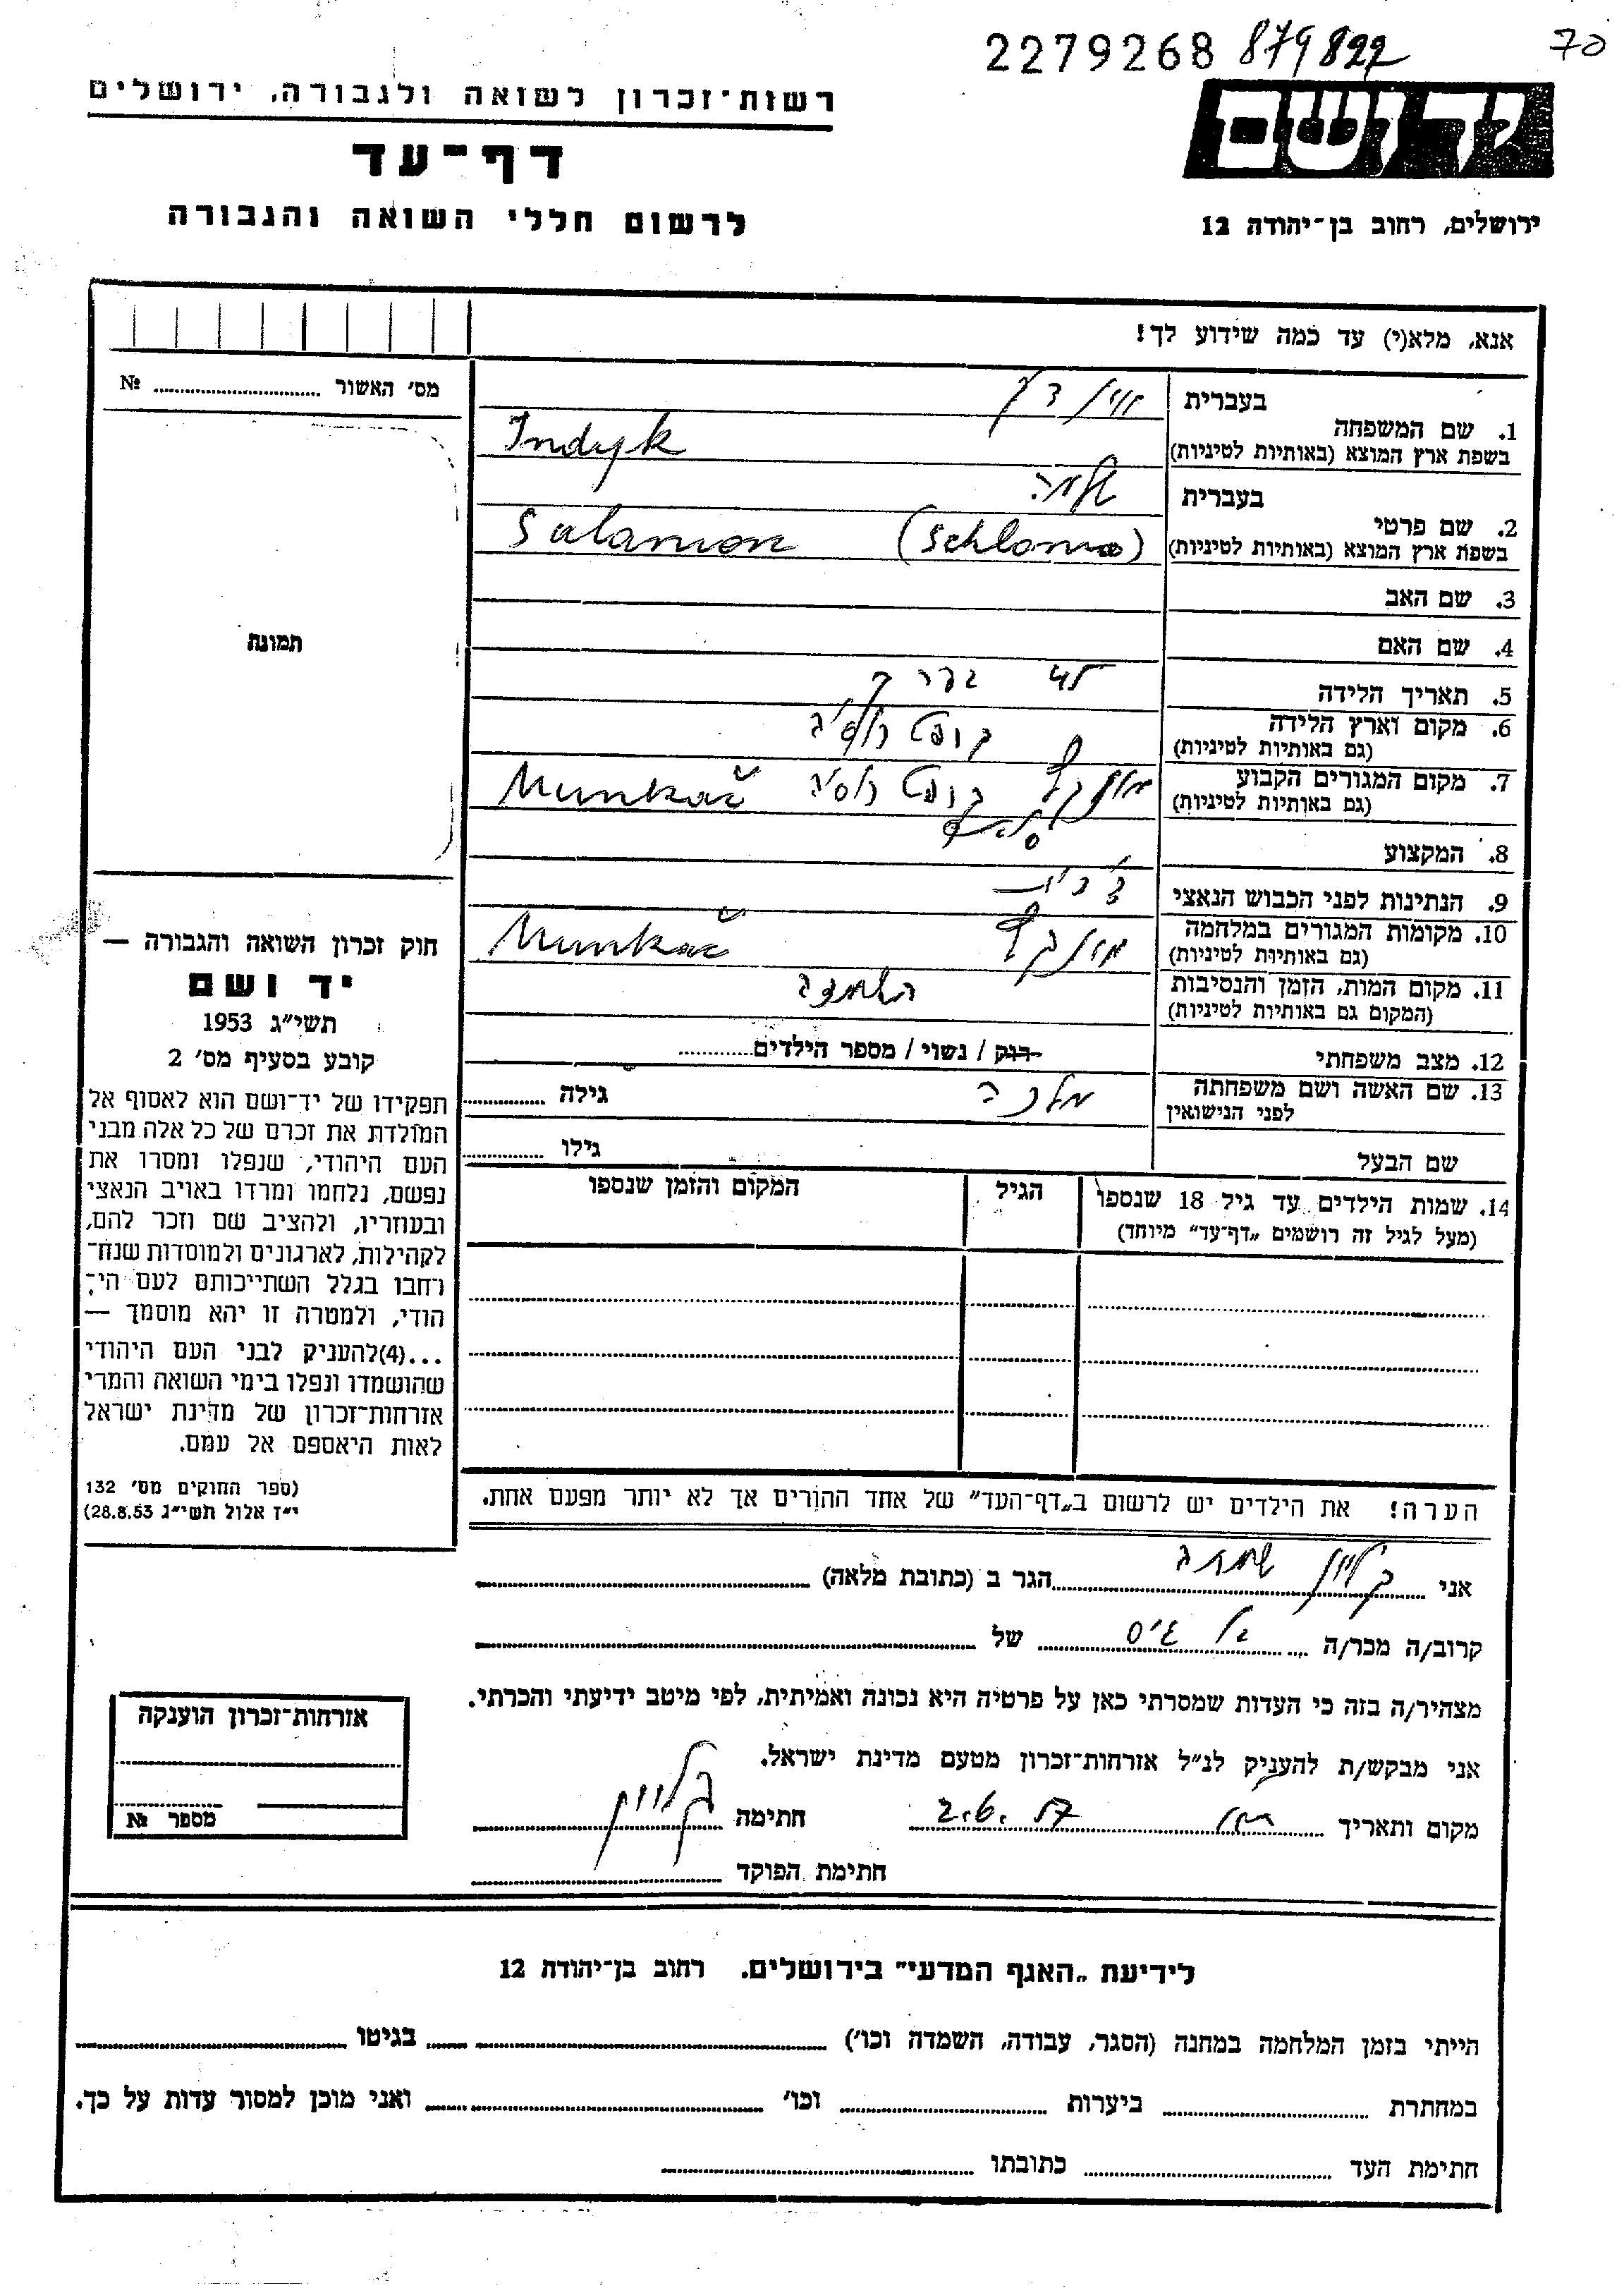 2279268 879822 70
רשות־זכרון לשואה ולגבורה, ירושלים
יד ושם
דף־עד
לרשום חללי השואה והגבורה
ירושלים, רחוב בן־יהודה 12
אנא, מלא(י) עד כמה שידוע לך!
מס' האשור № 
בעברית
1. שם המשפחה
בשפת ארץ המוצא (באותיות לטיניות) Indyk
בעברית שלמה
2. שם פרטי
בשפת ארץ המוצא (באותיות לטיניות) (Schlomo) Salamon
3. שם האב
4. שם האם
תמונה
5. תאריך הלידה
6. מקום וארץ הלידה
(גם באותיות לטיניות)
7. מקום המגורים הקבוע Munkač
(גם באותיות לטיניות)
8. המקצוע
9. הנתינות לפני הכבוש הנאצי צ'כית
10. מקומות המגורים במלחמה Munkač
(גם באותיות לטיניות)
11. מקום המות, הזמן והנסיבות השמדה
(המקום גם באותיות לטיניות)
12. מצב משפחתי רוק / נשוי / מספר הילדים
13. שם האשה ושם משפחתה מלכה גילה
לפני הנישואין
שם הבעל גילו
14. שמות הילדים עד גיל 18 שנספו הגיל המקום והזמן שנספו
(מעל לגיל זה רושמים "דף־עד" מיוחד)
חוק זכרון השואה והגבורה —
יד ושם
תשי"ג 1953
קובע בסעיף מס' 2
תפקידו של יד־ושם הוא לאסוף אל
המולדת את זכרם של כל אלה מבני
העם היהודי, שנפלו ומסרו את
נפשם, נלחמו ומרדו באויב הנאצי
ובעוזריו, ולהציב שם וזכר להם,
לקהילות, לארגונים ולמוסדות שנח־
רחבו בגלל השתייכותם לעם הי־
הודי, ולמטרה זו יהא מוסמך —
...(4)להעניק לבני העם היהודי
שהושמדו ונפלו בימי השואה והמרי
אזרחות־זכרון של מדינת ישראל
לאות היאספם אל עמם.
(ספר החוקים מס' 132
י"ז אלול תשי"ג 28.8.53)
הערה! את הילדים יש לרשום ב"דף־העד" של אחד ההורים אך לא יותר מפעם אחת.
אני הגר ב (כתובת מלאה)
קרוב/ה מכר/ה גיס של
מצהיר/ה בזה כי העדות שמסרתי כאן על פרטיה היא נכונה ואמיתית, לפי מיטב ידיעתי והכרתי.
אני מבקש/ת להעניק לנ"ל אזרחות־זכרון מטעם מדינת ישראל.
מקום ותאריך 2.6.57 חתימה
חתימת הפוקד
אזרחות־זכרון הוענקה
מספר №
לידיעת "האגף המדעי" בירושלים. רחוב בן־יהודה 12
הייתי בזמן המלחמה במחנה (הסגר, עבודה, השמדה וכו') בגיטו
במחתרת ביערות וכו' ואני מוכן למסור עדות על כך.
חתימת העד כתובתו